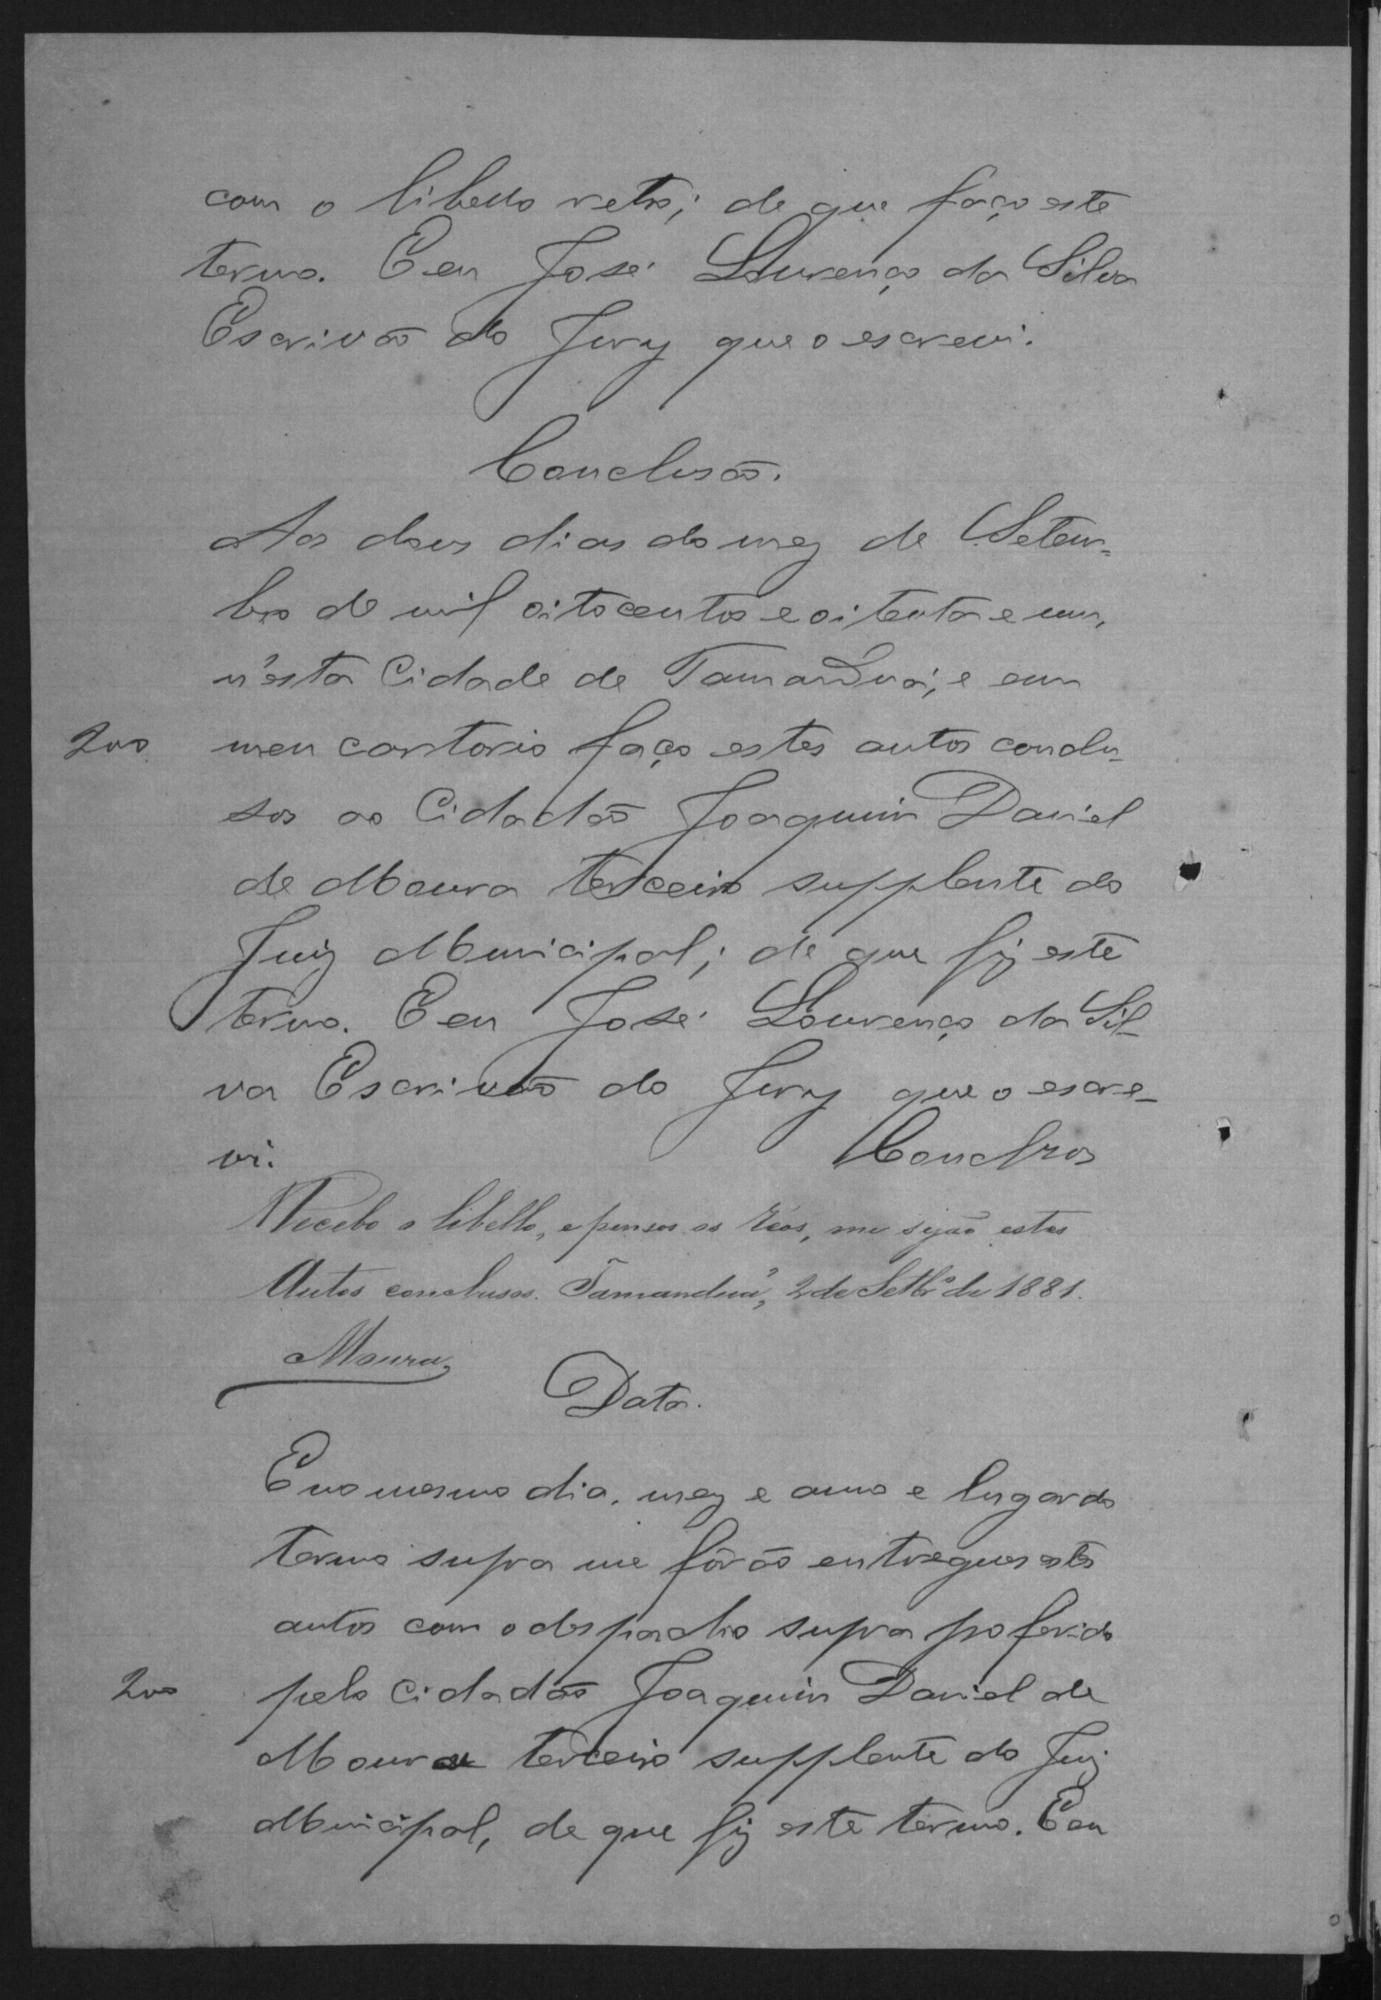 com o libello retro; de que faço este
termo. E eu José Lourenço da Silva
Escrivão do Jury que o escrevi.
Conclusão.
Aos dous dias do mez de Setem-
bro de mil oitocentos e oitenta e um,
n'esta Cidade de Tamanduá, e em
200 meu cartorio faço estes autos conclu-
sos ao Cidadão Joaquim Daniel
de Moura terceiro supplente do
Juiz Municipal; de que fiz este
termo. E eu José Lourenço da Sil-
va Escrivão do Jury que o escre-
vi. Conclsos
Recebo o libello, e presos os Réos, me sejão estes
Autos conclusos. Tamanduá, 2 de Setbrº de 1881.
Moura
Data.
E no mesmo dia, mez e anno e lugar do
termo supra me fôrão entregues estes
autos com o despacho supra proferido
200 pelo Cidadão Joaquim Daniel de
Moura terceiro supplente do Juiz
Municipal, de que fiz este termo. E eu